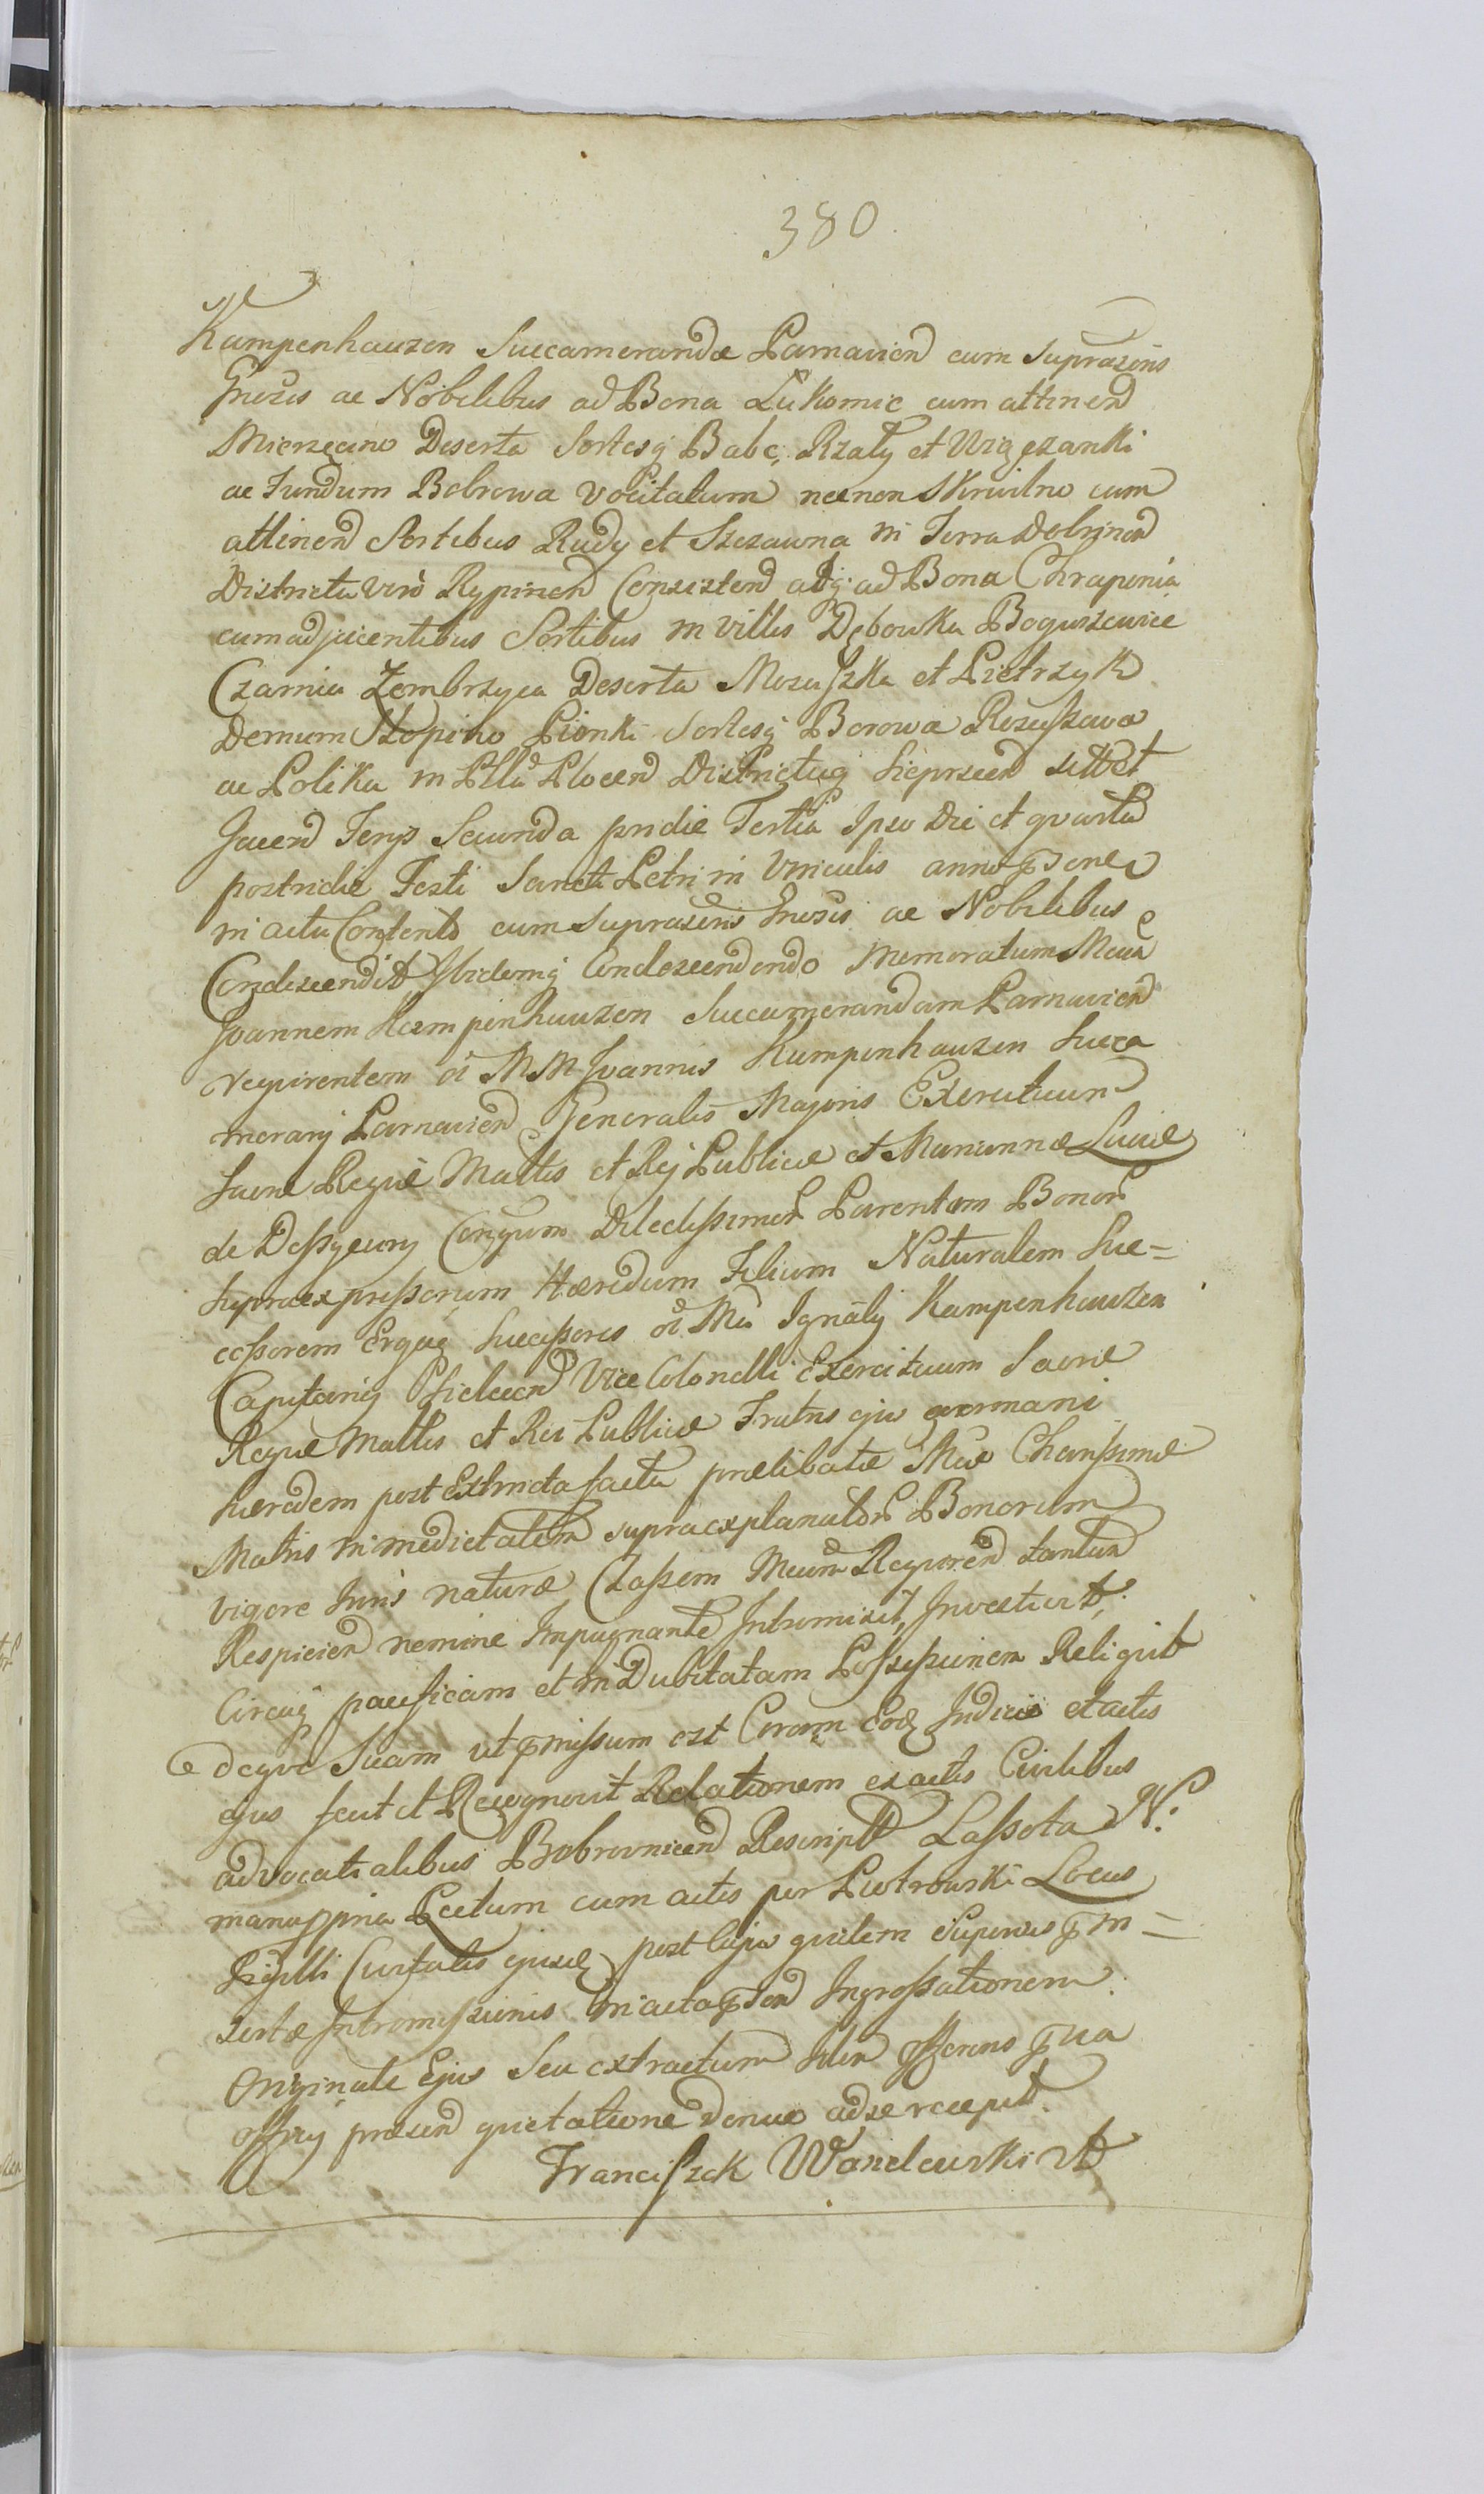 380
Kampenhauzen Succamerandæ Parnavien cum suprascris
Gnosis ac Nobilibus ad Bona Łukomie cum attinen
Mierzęcino Deserta Sortesq Babc, Rzały et
ac Fundum Bobrowa vocitatum necnon Skrwilno cum
attinen Sortibus Rudy et Szczawna in Terra Dobrinen
Districtu vero Rypinen Consisten adq ad Bona Chraponia
cum adjacentibus Sortibus in villis Dębowka Boguszewice
Czarnia Zembrzyca Deserta et Pietrzyk
Demum Słopino Pionki Sortesq Borowa Rozuszewa
ac Polika in Pllu Plocen Districtuq Sieprscen
Jacen Ferys Secunda pridie Tertia Ipso Die et quarta
postridie Festi Sancti Petri in Vinculis anno
in actu Contento cum suprascris Gnosis ac Nobilibus
Condescendit Ibidemq Condescendendo Memoratum Mcum
Joannem Kampenhauzen Succamerandam Parnavien
requirentem oi M M Joannis Kampenhauzen Succa
merary Parnavien Generalis Majoris Exercituum
Sacræ Regiæ Mattis et Rej Publicæ et Mariannæ Luciæ
de Conjgum Dilectissimor Parentem Bonor
supraexpressorum Hæredum Filium Naturalem Suc=
cessorem Ergaq Successores oi Mci Ignaty Kampenhauzen
Capitanij Vice Colonelli Exercituum Sacræ
Regiæ Mattis et Rei Publicæ Fratris ejus germani
hæredem post Extincta facta prælibatæ Mcæ Charissimæ
Matris in medietatem supraexplanator Bonorum
vigore Juris naturæ Classem Mcum Requiren tantum
Respicien nemine Impugnante Intromisit, Investivit,
Circaq pacificam et in Dubitatam Possessionem Reliquit
deqve Suam ut pmissum est Coram Eoq Judicio et actis
ejus fecit et Recognovit Relationem ex actis Civilibus
advocatialibus Bobrownicen Rescript Lassota N.
manuppria Lectum cum actis per Piotrowski Locus
Sigilli Civitatis ejusdę post cujus quidem Superius p in=
sertæ Intromissionis in acta psen Ingrossationem.
Originale Ejus Seu extractum Idem offerens p na
offi præsen quietatione denuo ad se recepit.
Franciszek Wasilewski